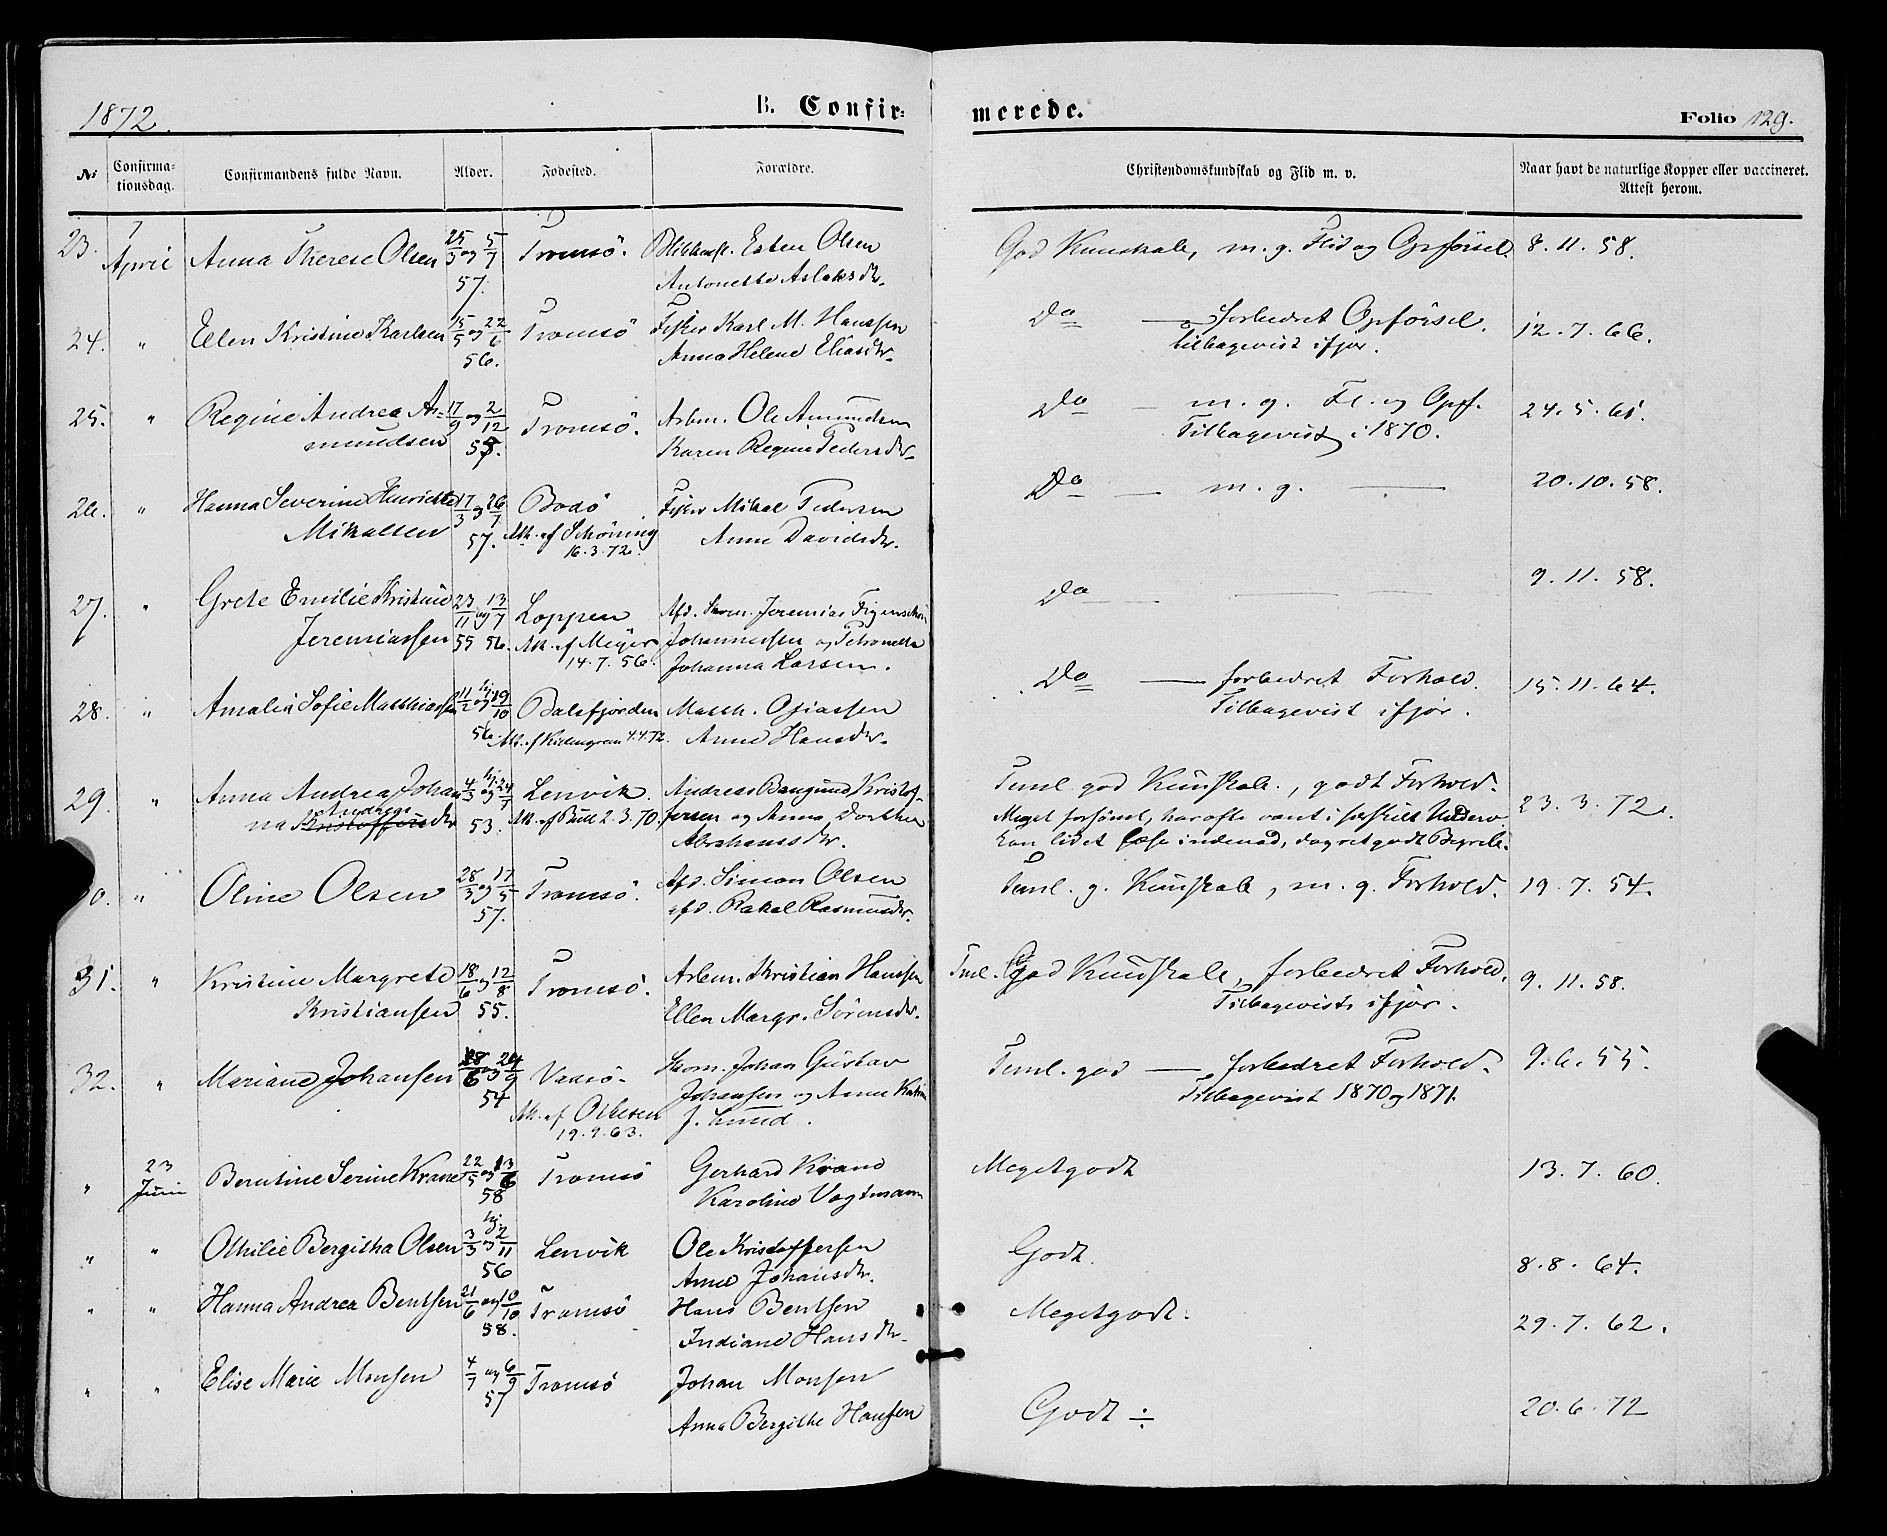 1872.
B. Confir-
merede.
Folio 129.
No
Confirma-
tionsdag.
Confirmandens fulde Navn.
Alder.
Fødested.
Forældre.
Christendomskundskab og Flid m. v.
Naar havt de naturlige Kopper eller vaccineret.
Attest herom.
23. 7 April Anna Therese Olsen 25/3 og 5/7 57. Tromsö. Esten Olsen
Antonette Aslaksdtr.
God Kunskab, m. g. Flid og Opförsel. 8. 11. 58.
24. " Ellen Kristine Karlsen 15/5 og 22/6 56. Tromsö Fisker Karl M. Hanssen
Anna Helene Eliasdtr.
Do — forbedret Opförsel. 12. 7. 66.
tilbagevist ifjor.
25. " Regine Andrea As-
mundsen 17/9 og 2/12 Tromsö. Arbm. Ole Amundsen
Karen Regine Pedersdtr.
Do — m. g. Fl. og Opf. 24. 5. 61.
Tilbagevist i 1870.
26. " Hanna Severine Henriette
Mikalsen 17/3 og 26/7 57. Bodö
Att. af Schöning
16. 3. 72.
Fisker Mikal Pedersen
Anne Davidsdtr.
Do — m. g. — 20. 10. 58.
27. " Grete Emilie Kristine
Jeremiassen 23/11 55 og 13/7 56. Loppen
Att. af Meyer
14. 7. 56.
Afd. Skom. Jeremias Figenschou
Johannessen og Petronella
Johanna Larsen.
Do — — — 9. 11. 58.
28. " Amalia Sofie Matthiassen 11/2 hj. og 19/10 56. Balsfjorden
4.4.72.
Matth. Osiassen
Anne Hansdtr.
Do — forbedret Forhold. 15. 11. 64.
Tilbagevist ifjor.
29. " Anna Andrea Johan
na Kristoffersdtr Andreas 4/3 hj. og 24/7 53. Lenvik
Att. af Bull 2. 3. 70.
Andreas Kristof-
fersen og Anna Dorthea
Abrahamsdtr.
Teml. god Kunskab., godt Forhold.
Meget forsömt, har ofte vært i særskilt Underv.
kan lidet læse indenad, dog ret godt Begreb.
23. 3. 72.
30. " Oline Olsen 28/3 og 17/5 57. Tromsö. Afd. Simon Olsen
afd. Rakel Rasmusdtr.
Teml. g. Kunskab, m. g. Forhold. 19. 7. 54.
31. " Kristine Margrete
Kristiansen 18/6 og 12/8 55. Tromsö. Arbm. Kristian Hanssen
Ellen Margr. Sörensdtr.
Tml. God Kundskab, forbedret Forhold. 9. 11. 58.
Tilbagevist ifjor.
32. " Mariane Johansen 28/6 og 24/9 54 Vadsö.
Att. af
19. 9. 63.
Skom. Johan Gustav
Johansen og Anne Katrine
J. Lund.
Teml. god — forbedret Forhold. 9. 6. 55.
Tilbagevist 1870 og 1871.
" 23 Juni Berntine Serine Krane 22/5 og 13/6 58 Tromsö Gerhard Krane
Karoline Vogtmann
Megetgodt 13. 7. 60.
" " Othilie Bergitha Olsen 3/3 hj. og 2/11 56 Lenvik Ole Kristoffersen
Anne Johansdtr.
Godt. 8. 8. 64.
" " Hanna Andrea Bentsen 21/6 og 10/10 58. Tromsö Hans Bentsen
Indiane Hansdtr.
Megetgodt. 29. 7. 62.
" " Elise Marie Monsen 4/7 og 6/9 57 Tromsö Johan Monsen
Anna Bergithe Hansen
Godt ÷ 20. 6. 72